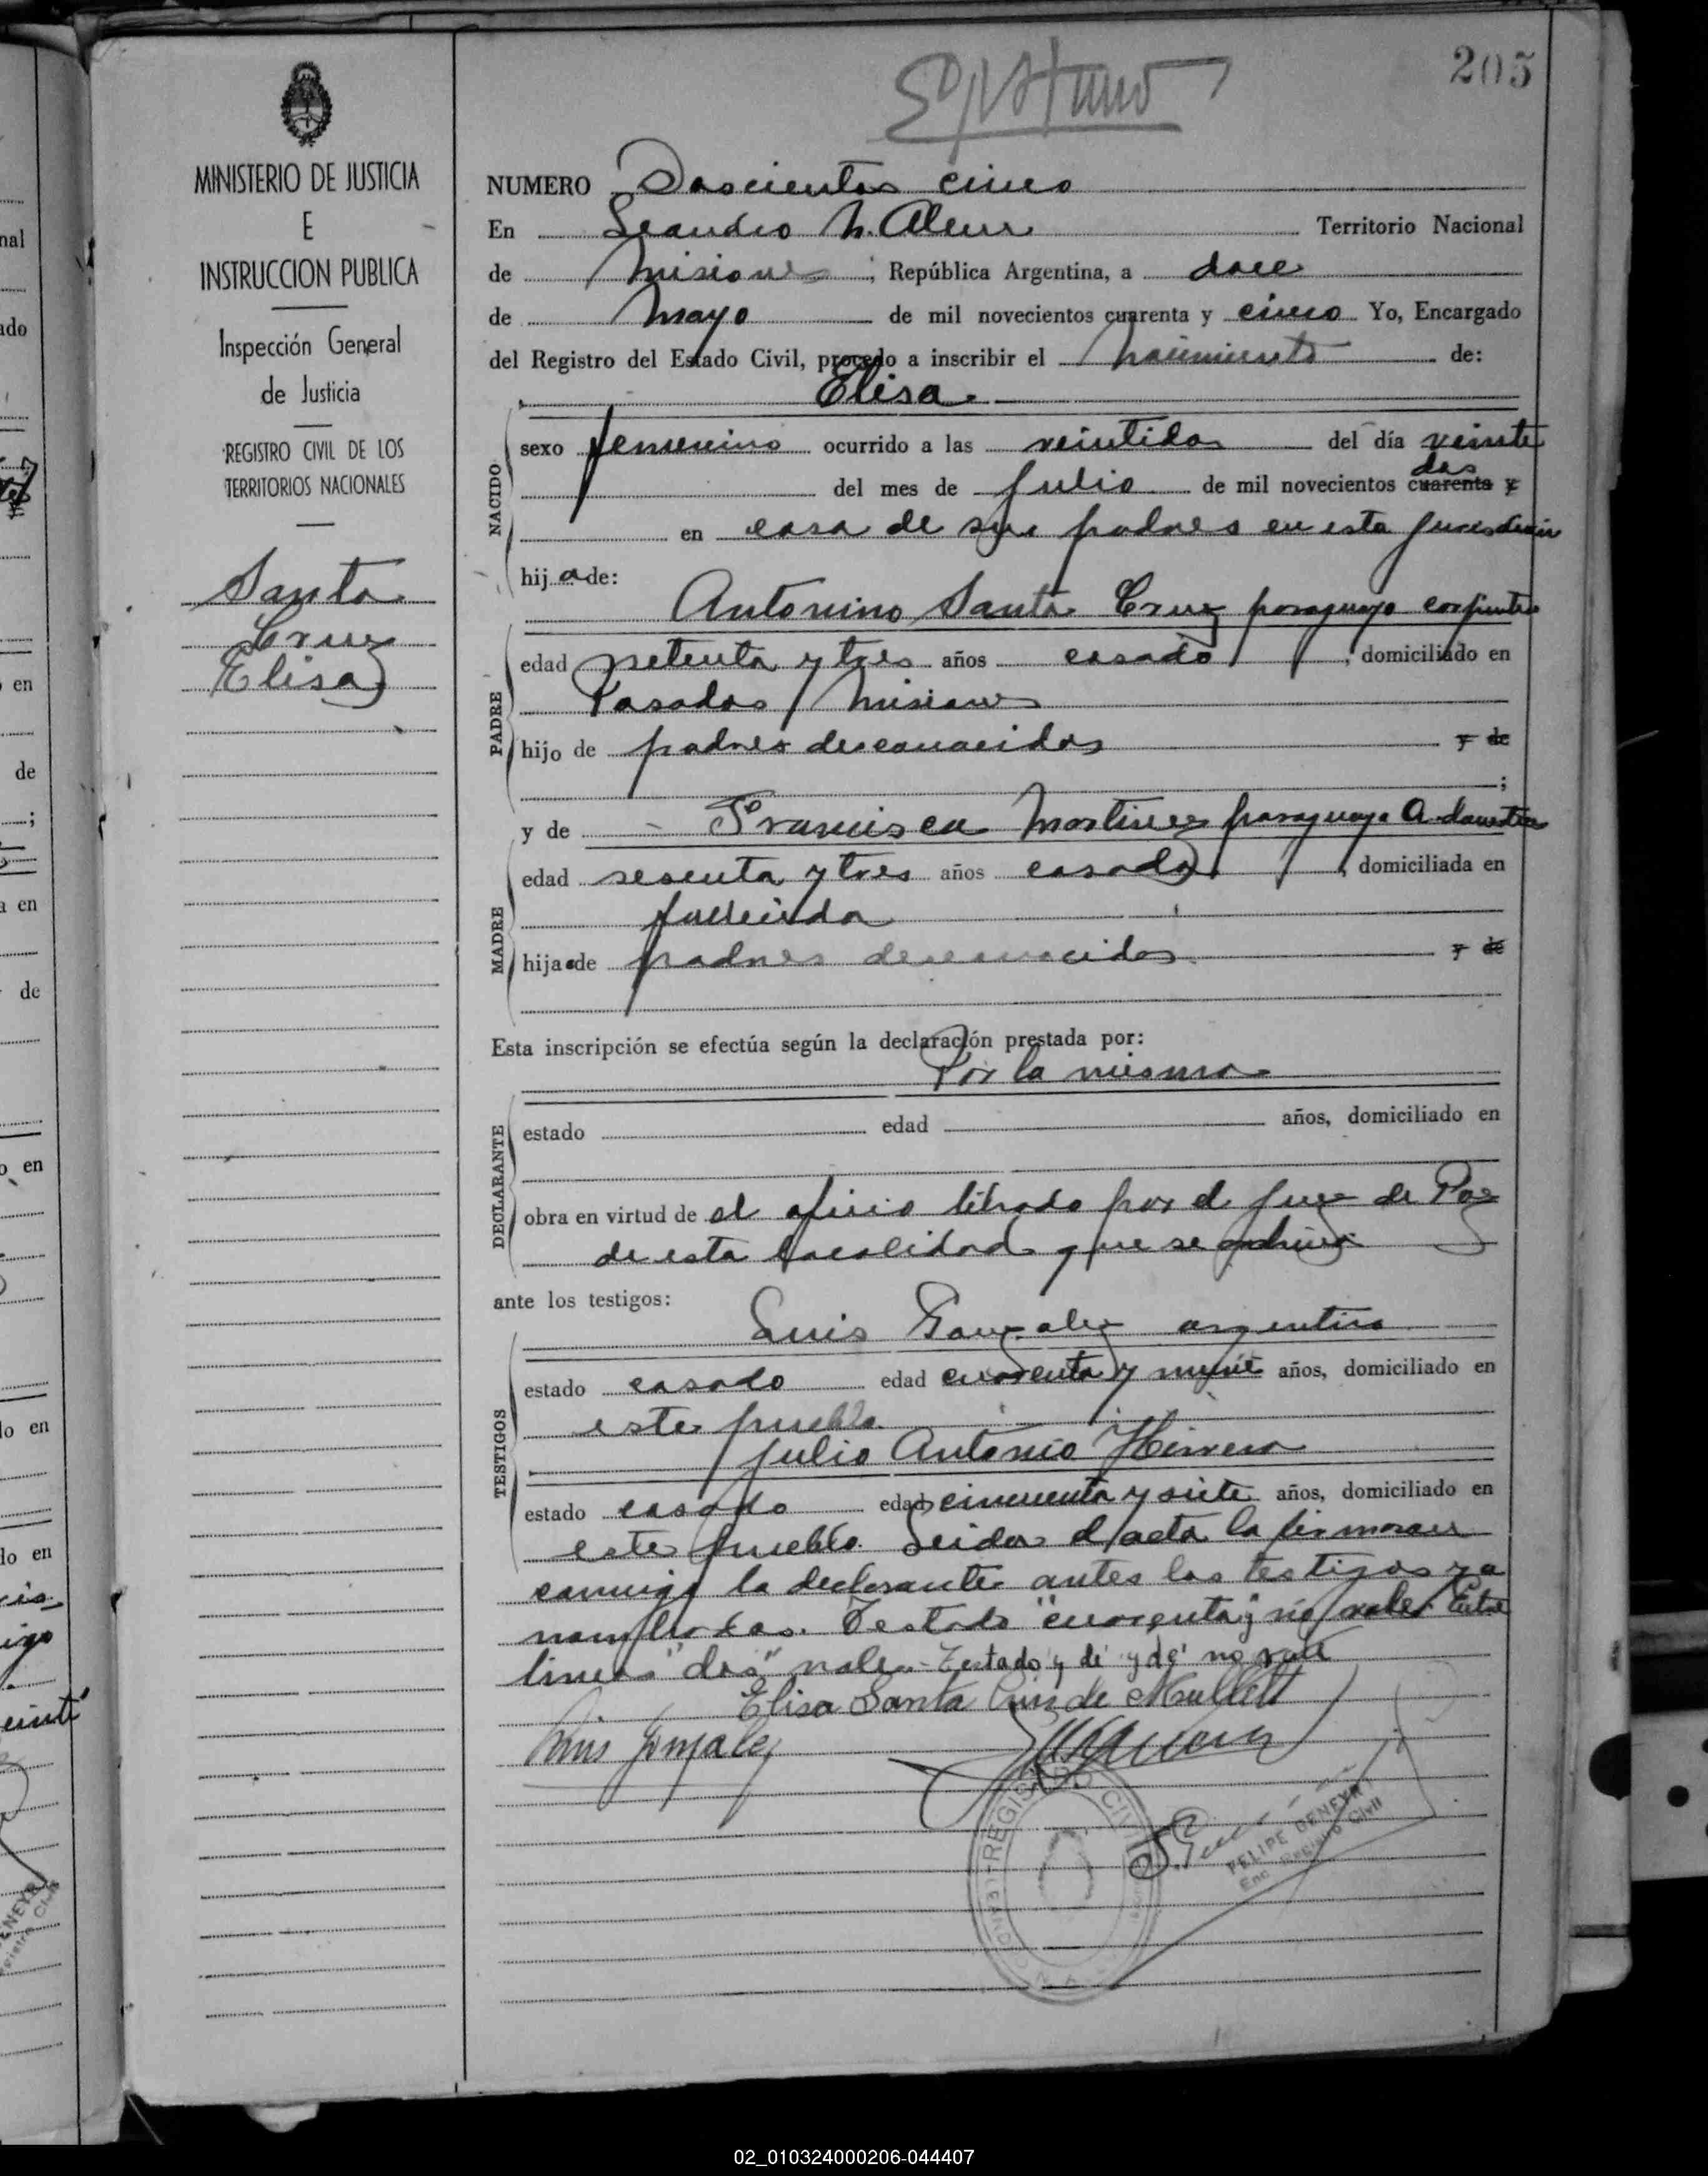 205
MINISTERIO DE JUSTICIA
E
INSTRUCCION PUBLICA
Inspección General
de Justicia
REGISTRO CIVIL DE LOS
TERRITORIOS NACIONALES
Santa
Cruz
Elisa
NUMERO Doscientos cinco
En Leandro N. Alem Territorio Nacional
de Misiones ; República Argentina, a doce
de Mayo de mil novecientos cuarenta y cinco Yo, Encargado
del Registro del Estado Civil, procedo a inscribir el nacimiento de:
Elisa
NACIDO
sexo femenino ocurrido a las veintidos del día veinte
del mes de Julio de mil novecientos cuarenta y dos
en casa de sus padres en esta jurisdicción
hija de:
Antonino Santa Cruz paraguayo carpintero
PADRE
edad setenta y tres años casado , domiciliado en
Posadas Misiones
hijo de padres desconocidos y de
;
y de Francisca Martinez paraguaya
MADRE
edad sesenta y tres años casada , domiciliada en
fallecida
hija de padres desconocidos y de
Esta inscripción se efectúa según la declaración prestada por:
Por la misma
DECLARANTE
estado edad años, domiciliado en
obra en virtud de el oficio librado por el Juez de Paz
de esta localidad que se archiva
ante los testigos:
Luis Gonzalez argentino
TESTIGOS
estado casado edad cuarenta y nueve años, domiciliado en
este pueblo
Julio Antonio Herrera
estado casado edad cincuenta y siete años, domiciliado en
este pueblo. Leida el acta la firmaron
conmigo la declarante antes los testigos ya
nombrados. Testado "cuarenta y" no vale. Entre
lineas "dos" vale.- Testado "y de" "y de" no vale
Elisa Santa Cruz de
Luis Gonzalez
REGISTRO CIVIL
FELIPE DENEYR
Enc. Registro Civil
02_010324000206-044407